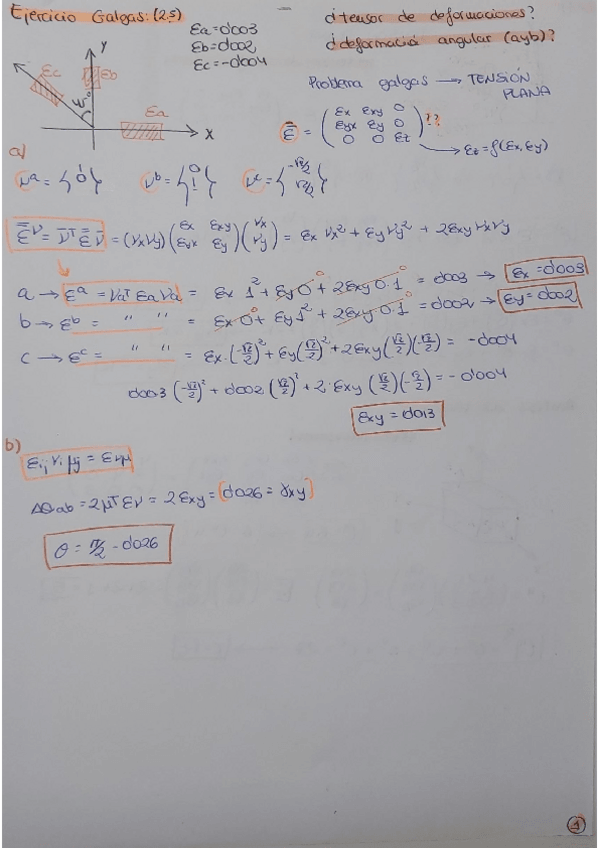 Ejercicio Galgas: (2,5)
¿tensor de deformaciones?
¿deformació angular (ayb)?
Ea = 0'003
Eb = 0'002
Ec = -0'004
Problema galgas → TENSIÓN PLANA
y
Ec
Eb
45°
Ea
x
ε = (εx εxy 0
εyx εy 0
0 0 εz) ??
→ εz = f(εx, εy)
a)
νa = {1 0} νb = {0 1} νc = {-√2/2 √2/2}
εν = νT ε ν = (νx νy) (εx εxy εyx εy) (νx νy) = εx νx² + εy νy² + 2εxy νx νy
a → εa = νaT εa νa = εx 1² + εy 0 + 2εxy 0·1 = 0'003 → εx = 0'003
b → εb = " " = εx·0 + εy 1² + 2εxy 0·1 = 0'002 → εy = 0'002
c → εc = " " = εx·(-√2/2)² + εy(√2/2)² + 2εxy(√2/2)(-√2/2) = -0'004
0'003 (-√2/2)² + 0'002 (√2/2)² + 2·εxy (√2/2)(-√2/2) = -0'004
εxy = 0'013
b)
εij νi μj = ενμ
Δθab = 2μT ε ν = 2εxy = [0'026 = γxy]
θ = π/2 - 0'026
1